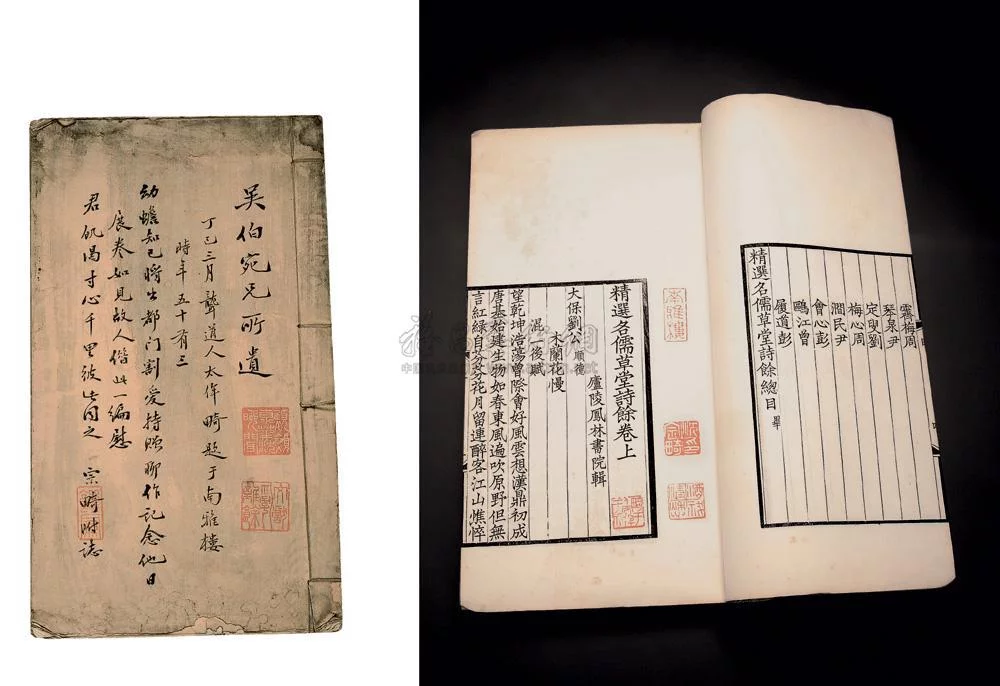 吳伯宛兄所遺
丁巳三月聾道人太侔畸題于南雅樓
時年五十有三
幼蟾知己將出都門割愛持贈聊作記念他日
展卷如見故人偕此一編慰
君飢渴寸心千里彼此同之 宗畸附誌
霽梅周
琴泉尹
定叟劉
梅心周
澗民尹
會心彭
鷗江曾
履道彭
精選名儒草堂詩餘總目 畢
精選名儒草堂詩餘卷上
廬陵鳳林書院輯
大保劉公 順德
木蘭花慢
混一後賦
望乾坤浩蕩曾際會好風雲想漢鼎初成
唐基始建生物如春東風遍吹原野但無
言紅綠自芬芬花月留連醉客江山憔悴